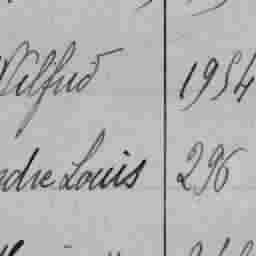 Wilfrid 1954
ndre Louis 296